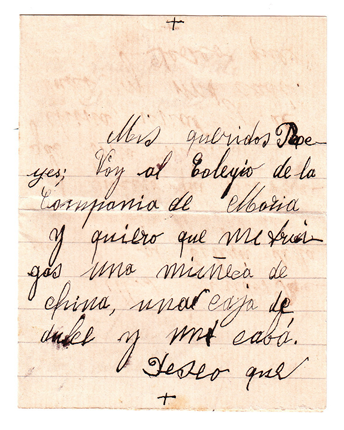 Mis queridos Re-
yes; Voy al Colegio de la
Compania de Maria
y quiero que me trai-
gas una muñeca de
china, una caja de
dulse y una
Deseo que